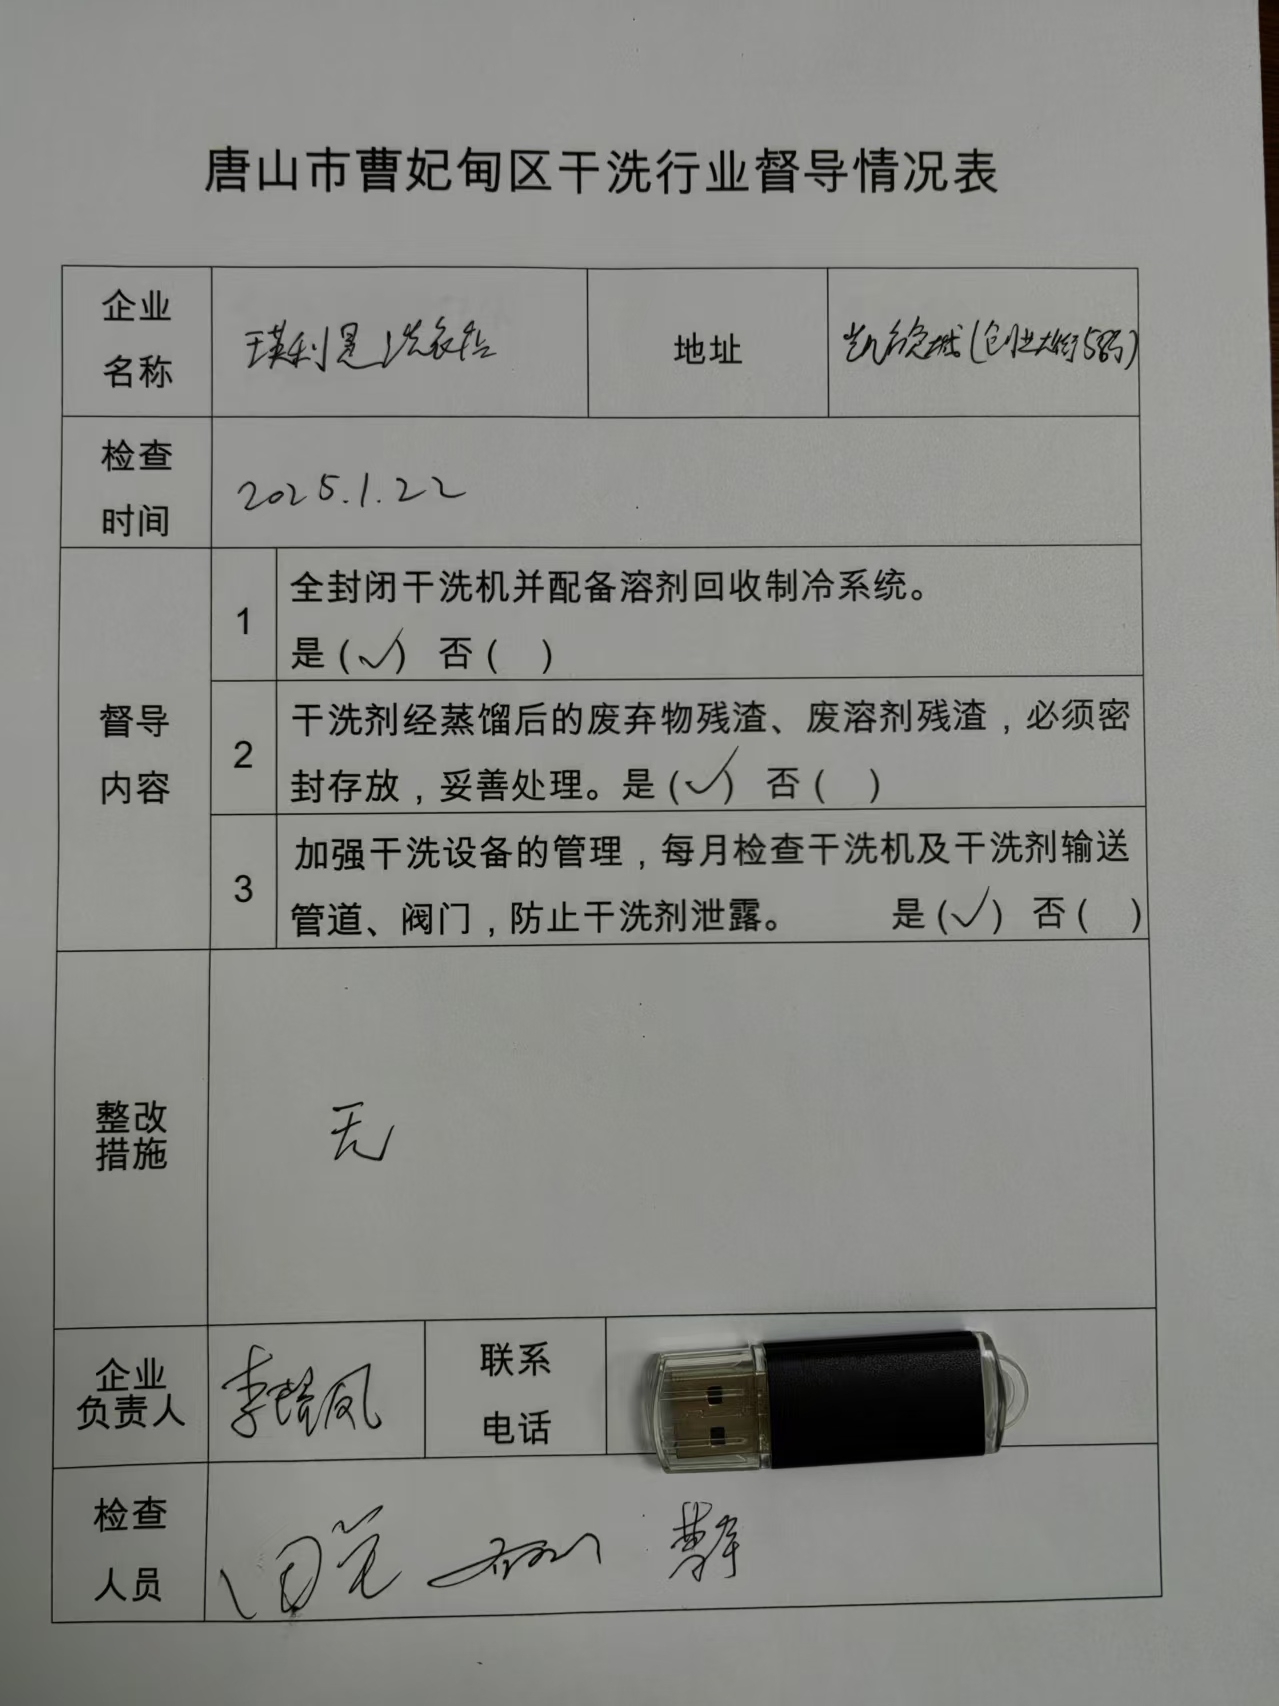 唐山市曹妃甸区干洗行业督导情况表
企业名称 洗衣店 地址 凯 城(创业大街58号)
检查时间 2025.1.22
督导内容
1 全封闭干洗机并配备溶剂回收制冷系统。
是(✓) 否( )
2 干洗剂经蒸馏后的废弃物残渣、废溶剂残渣，必须密
封存放，妥善处理。是(✓) 否( )
3 加强干洗设备的管理，每月检查干洗机及干洗剂输送
管道、阀门，防止干洗剂泄露。 是(✓) 否( )
整改措施 无
企业负责人 李 凤 联系电话
检查人员